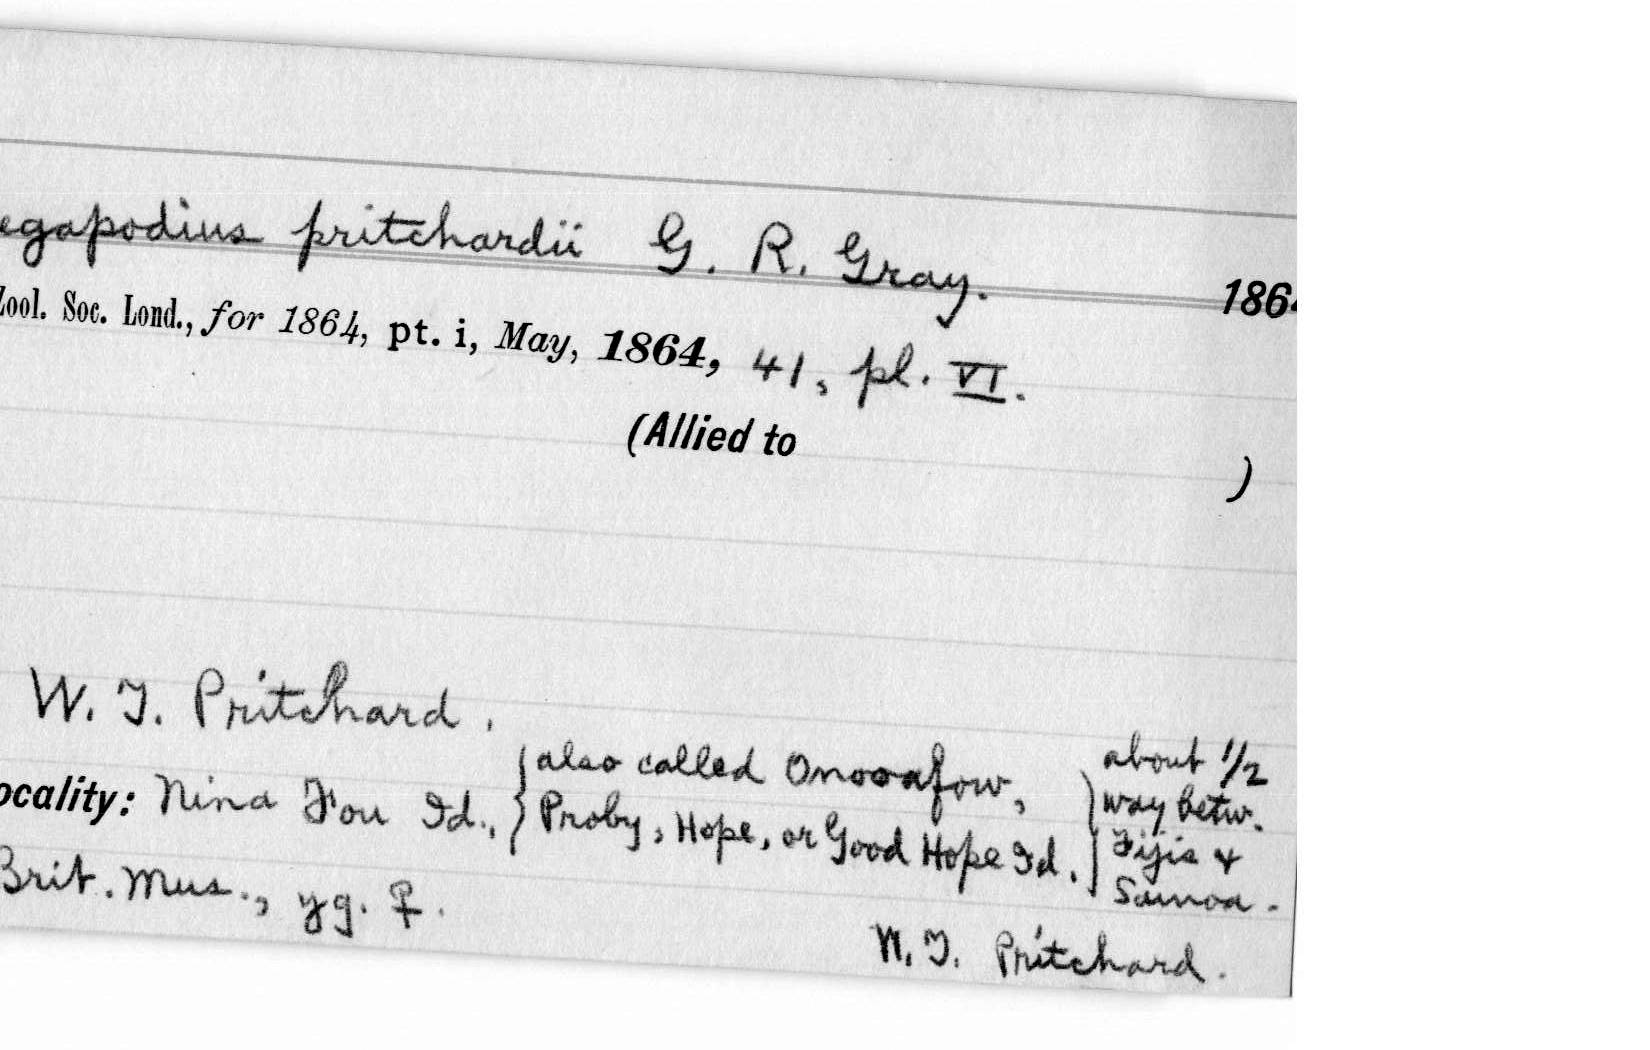 egapodius pritchardii G. R. Gray. 186
Zool. Soc. Lond., for 1864, pt. i, May, 1864, 41, pl. VI.
(Allied to )
W. T. Pritchard.
ocality: Nina Fou Id., {also called Onooafow, Proby, Hope, or Good Hope Id.} about 1/2
way betw.
Fijis &
Samoa.
Brit. Mus., yg. ♀.
W. T. Pritchard.